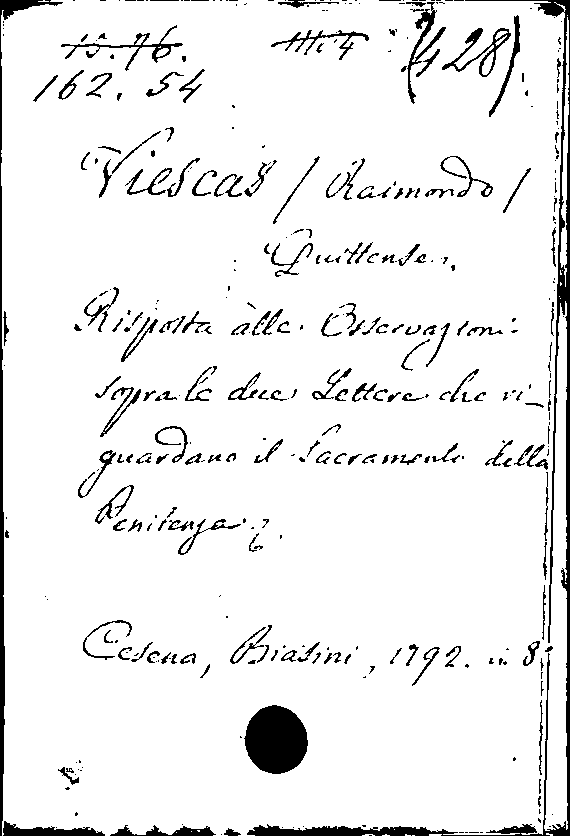 15.76. IIIi4 (428)
162. 54
Viescas / Raimondo /
Quittense.
Risposta àlle Osservazioni
sopra le due Lettere che ri-
guardano il Sacramento della
Penitenza
Cesena, Biasini, 1792. in 8º